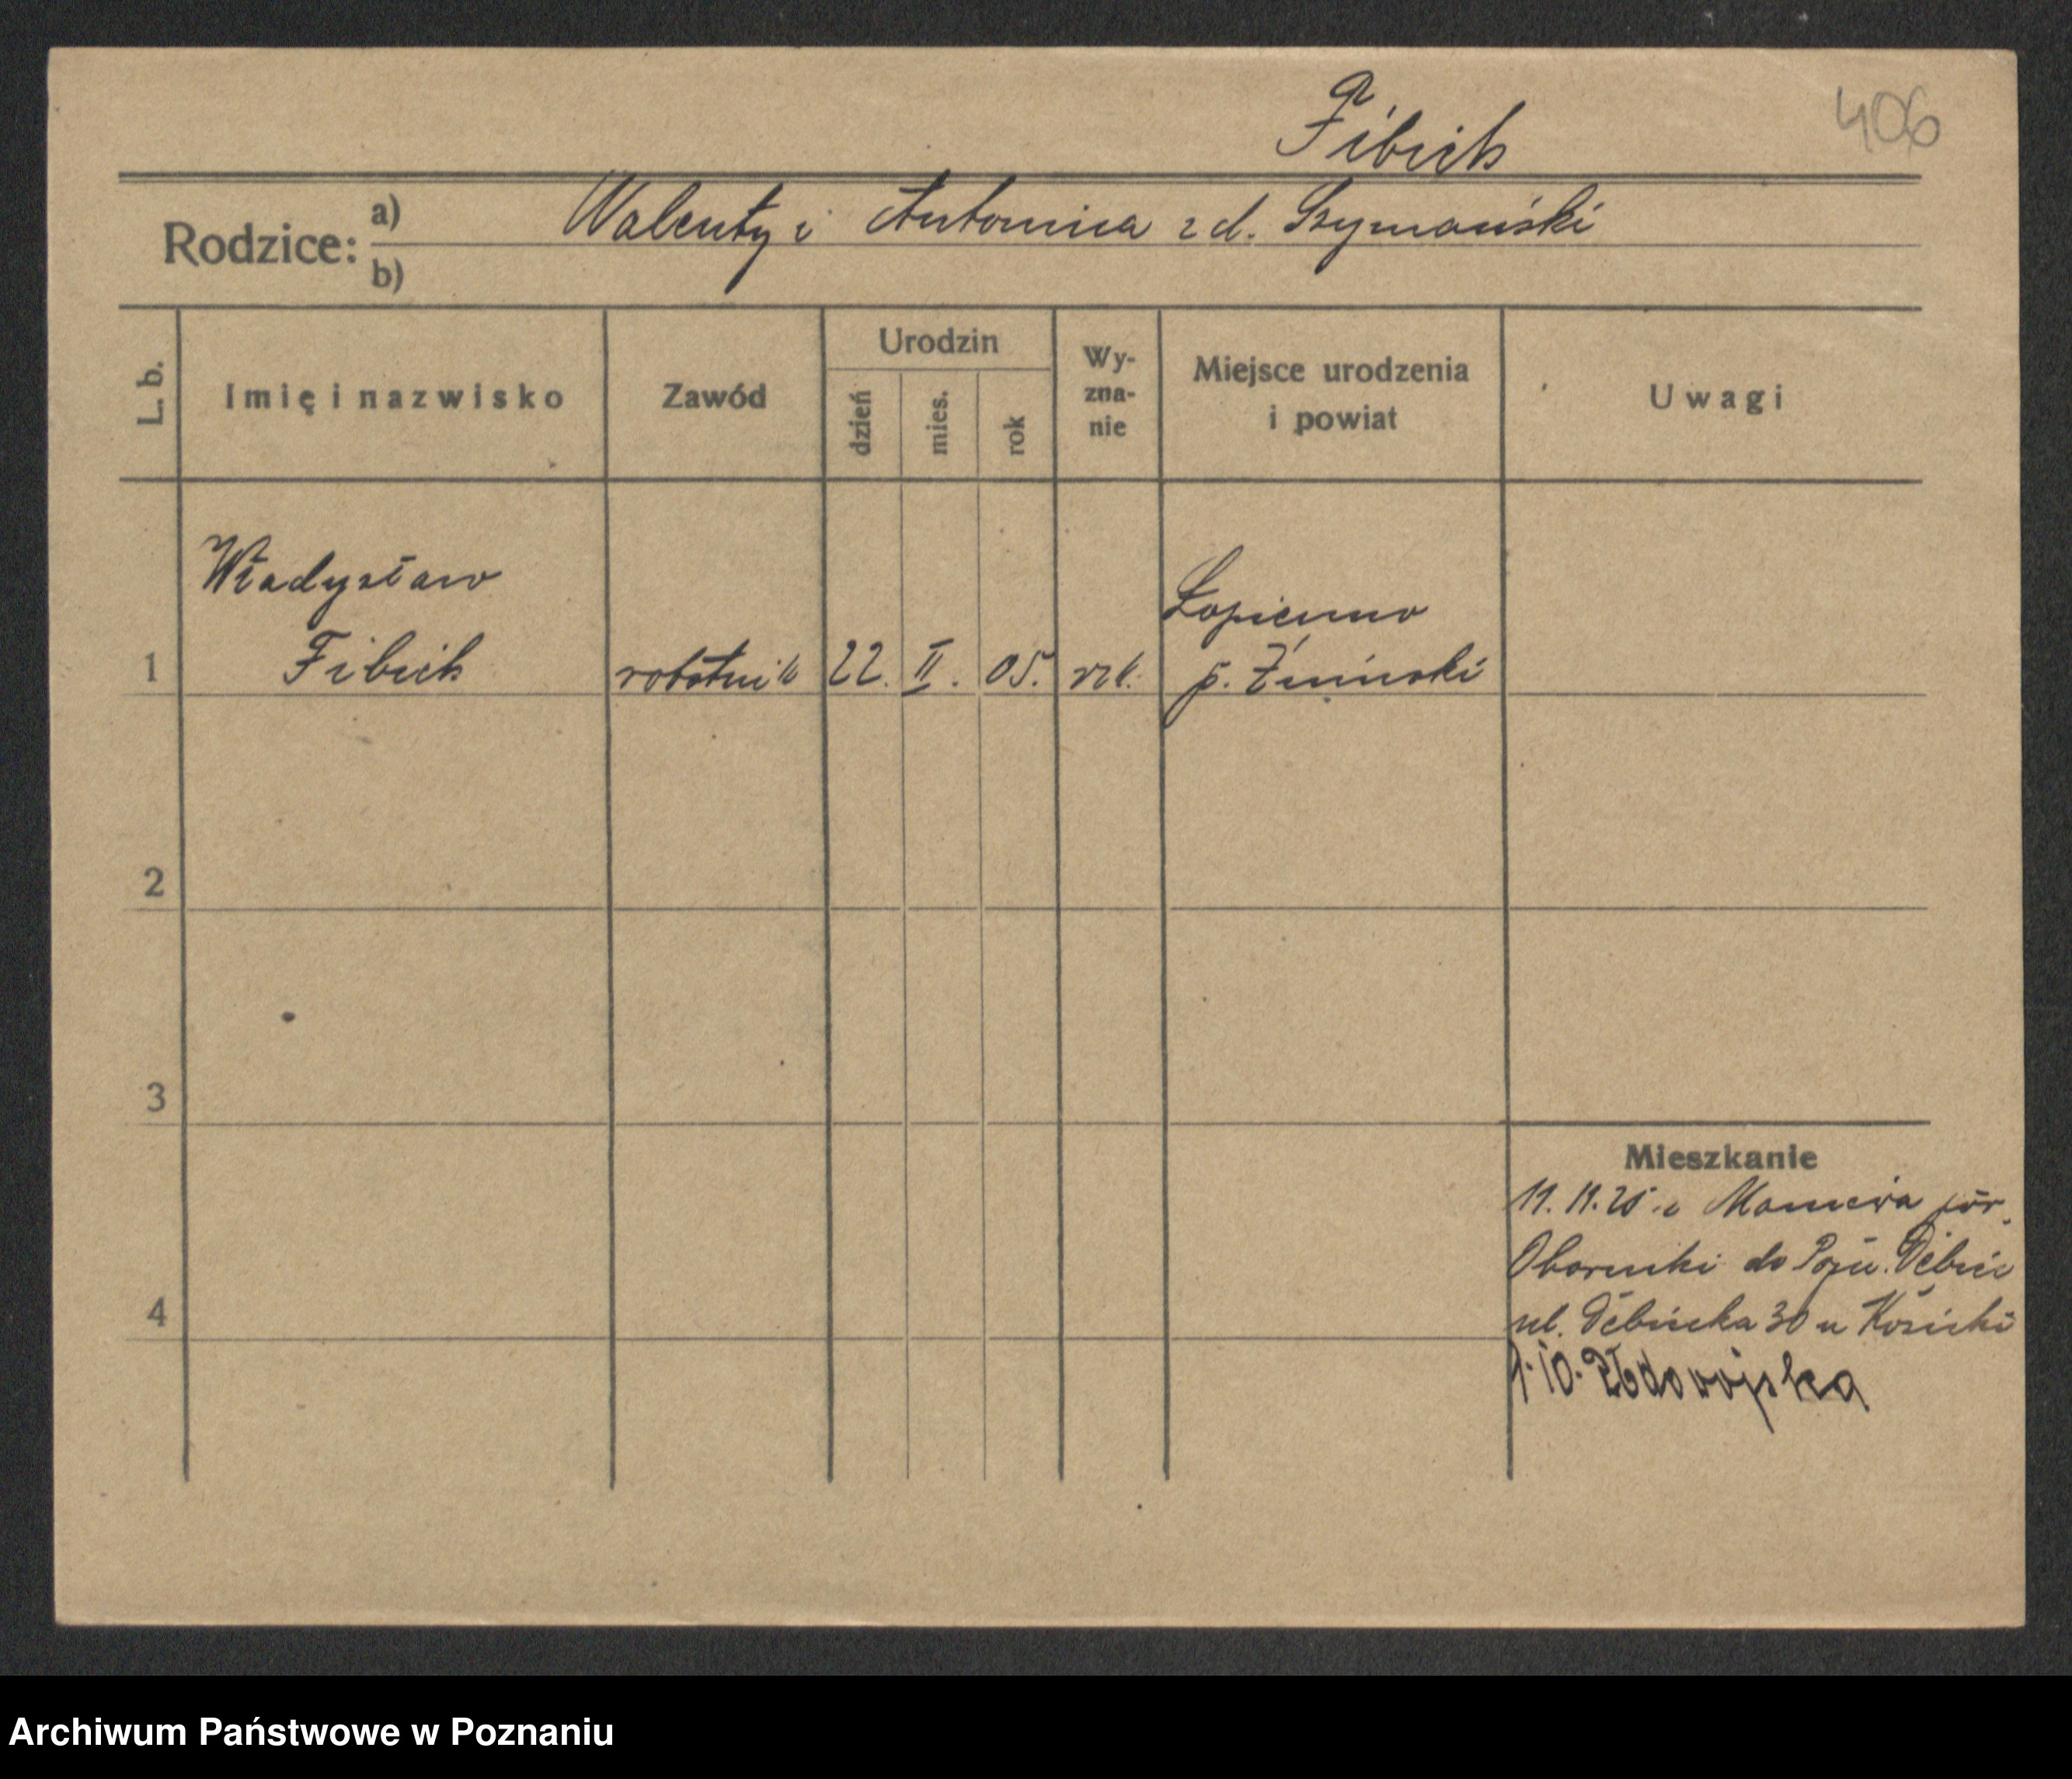 406
Fibich
Rodzice: a) Walenty i Antonina z d. Szymański
b)
L. b. Imię i nazwisko Zawód Urodzin dzień mies. rok Wy-zna-nie Miejsce urodzenia i powiat Uwagi
Władysław Łopienno
1 Fibich robotnik 22. II. 05. rzk. p. Żniński
2
3
Mieszkanie
11.11.25 z Maniewa pow.
Oborniki do Pozn. Dębiec
4 ul. Dębińska 30 u Kosicki
1.10.26 do wojska
Archiwum Państwowe w Poznaniu